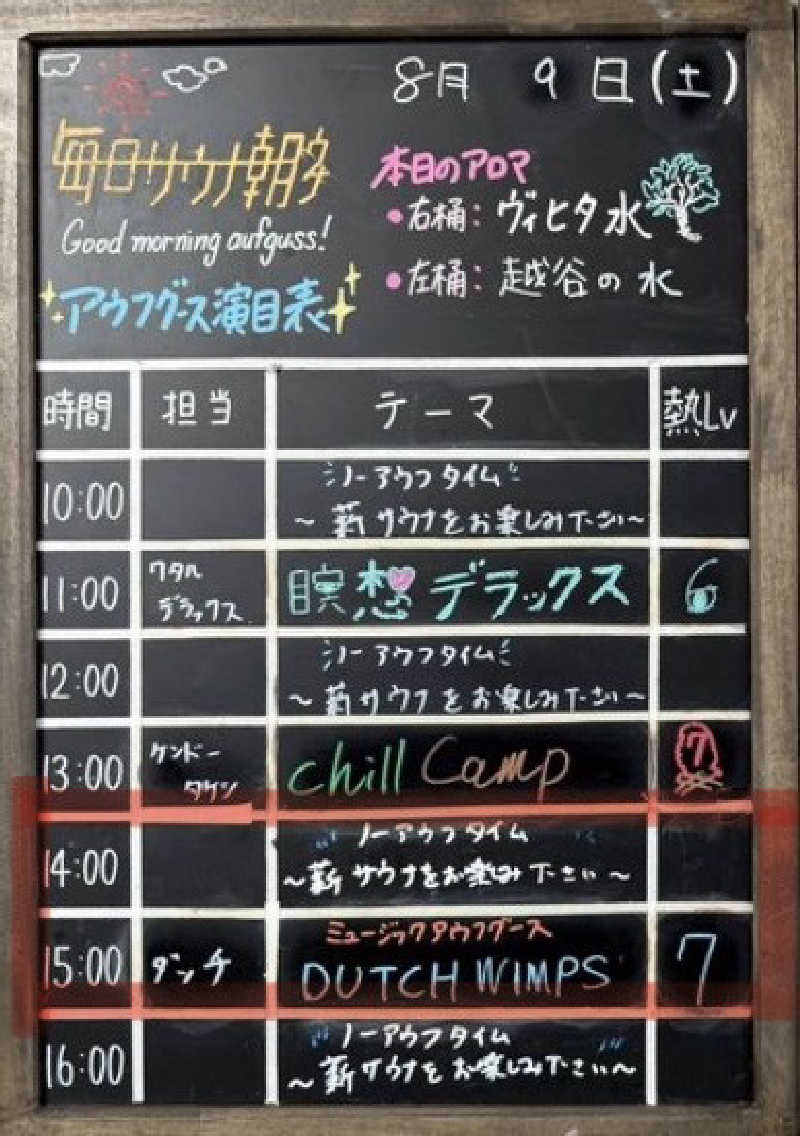 8月 9日(土)
毎日サウナ朝多
Good morning aufguss!
アウフグース演目表
本日のアロマ
・右桶：ヴィヒタ水
・左桶：越谷の水
時間 担当 テーマ 熱Lv
10:00 ノーアウフタイム
～薪サウナをお楽しみ下さい～
11:00 ワタル デラックス 瞑想デラックス 6
12:00 ノーアウフタイム
～薪サウナをお楽しみ下さい～
13:00 ケンドー タケシ chill Camp 7
14:00 ノーアウフタイム
～薪サウナをお楽しみ下さい～
15:00 ダッチ ミュージックアウフグース
DUTCH WIMPS 7
16:00 ノーアウフタイム
～薪サウナをお楽しみ下さい～